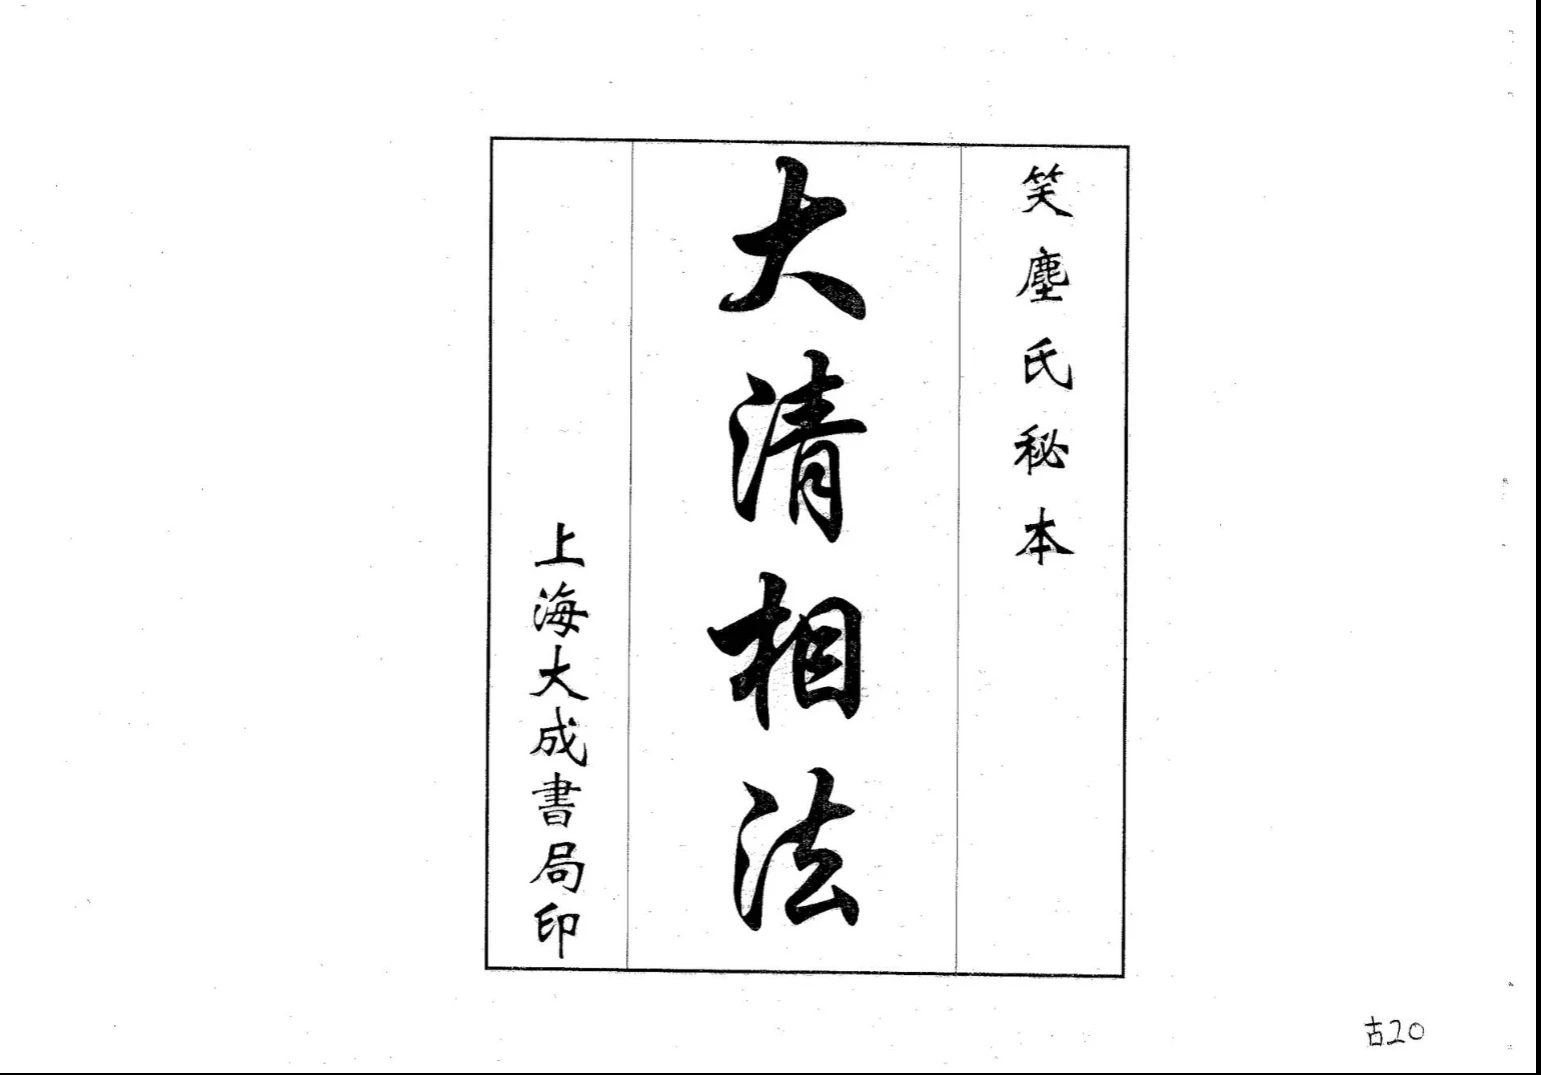 笑塵氏秘本
大清相法
上海大成書局印
古20